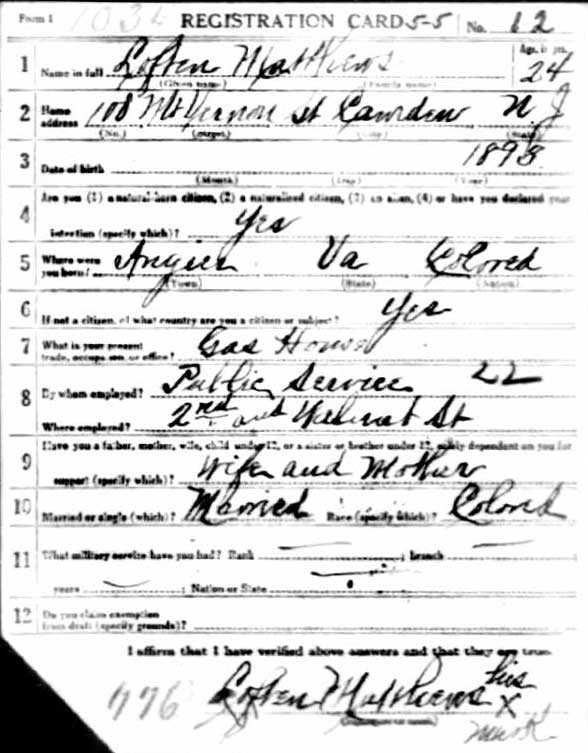 Form 1 1032 REGISTRATION CARD 5-5 No. 12
1 Name in full Loften Matthews Age, in yrs. 24
(Given name) (Family name)
2 Home address 108 Mt Vernon St Camden N J
(No.) (Street) (City) (State)
3 Date of birth 1893
(Month) (Day) (Year)
4 Are you (1) a natural-born citizen, (2) a naturalized citizen, (3) an alien, (4) or have you declared your
intention (specify which)? Yes
5 Where were you born? Va Colored
(Town) (State) (Nation)
6 If not a citizen, of what country are you a citizen or subject? Yes
7 What is your present trade, occupation, or office? Gas House
8 By whom employed? Public Service 22
Where employed? 2nd and Walnut St
9 Have you a father, mother, wife, child under 12, or a sister or brother under 12, solely dependent on you for
support (specify which)? Wife and Mother
10 Married or single (which)? Married Race (specify which)? Colored
11 What military service have you had? Rank ; branch
years ; Nation or State
12 Do you claim exemption from draft (specify grounds)?
I affirm that I have verified above answers and that they are true.
776 Loften Matthews his
X
mark